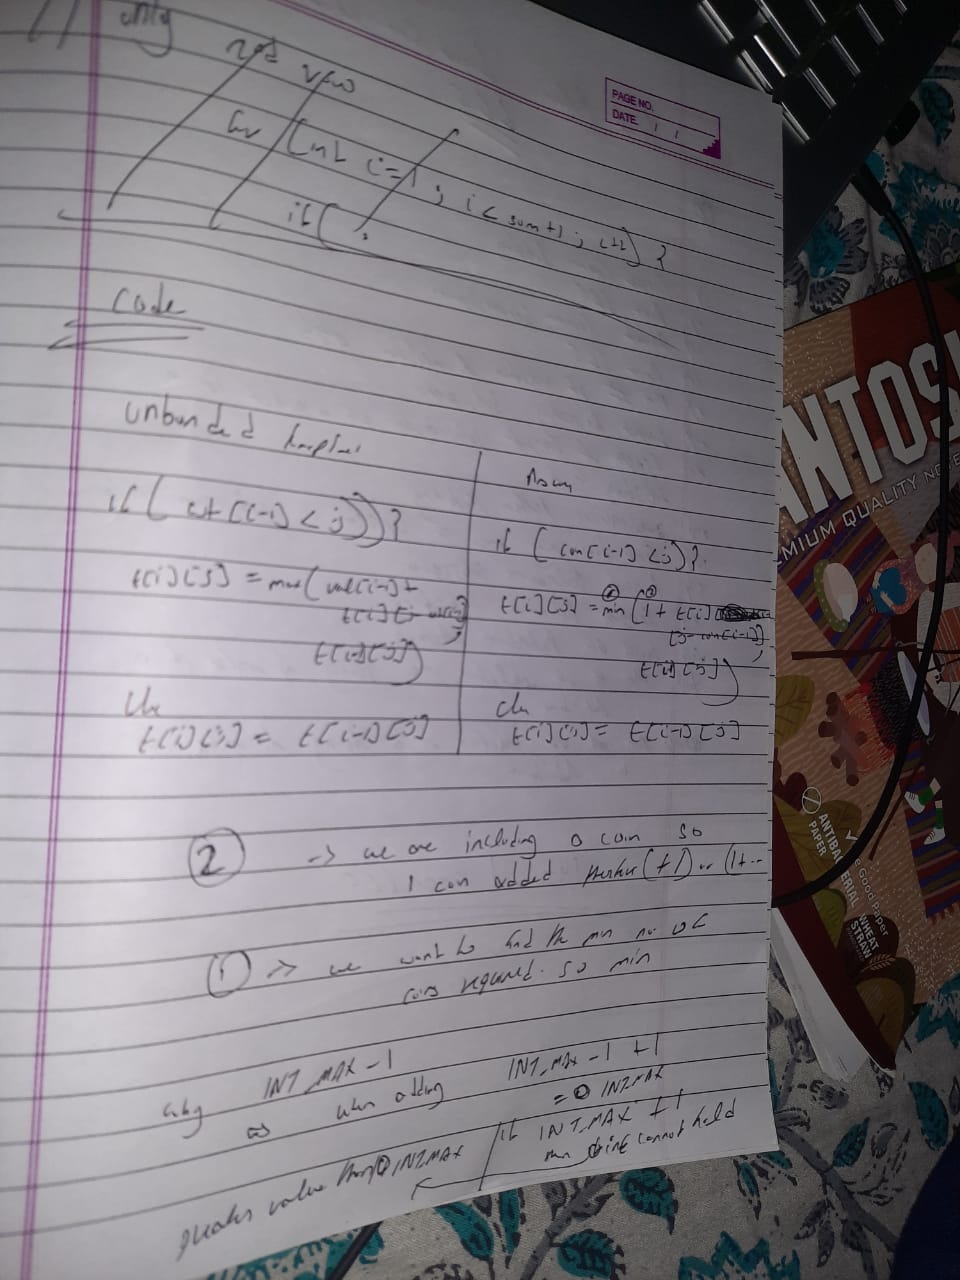 only
2nd row
for (int i=1 ; i < sum+1 ; i++) {
if (
PAGE NO.
DATE / /
Code
unbounded
if ( wt[i-1] < j)) {
t[i][j] = max( val[i-1] +
t[i][j - wt[i-1]]
,
t[i-1][j])
else
t[i][j] = t[i-1][j]
if ( coin[i-1] < j) {
t[i][j] = min ( 1 + t[i]
② ①
[j- coin[i-1]]
,
t[i-1][j])
else
t[i][j] = t[i-1][j]
② -> we are including a coin so
1 coin added (+1) or (1+--
① >> we want to find the min no of
coins required. so min
why INT_MAX-1
as when adding INT_MAX-1 +1
= INTMAX
if INT_MAX +1
then int cannot hold
greater value than INTMAX
ANTOS
MIUM QUALITY NOTE
ANTIBACTERIAL PAPER
WHEAT STRAW
e Good Paper